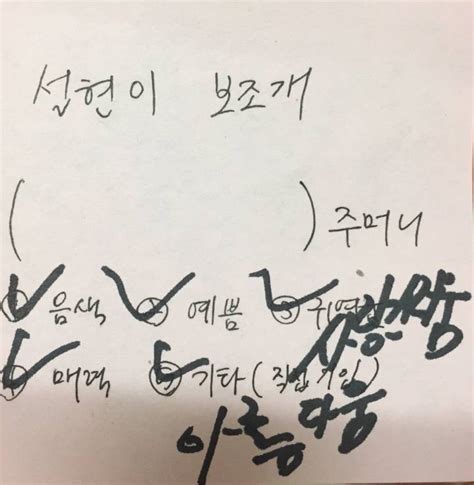 설현이 보조개
( ) 주머니
① 음색 ② 예쁨 ③ 귀여움
④ 매력 ⑤ 기타 (직접 기입)
사랑스러움
아름다움